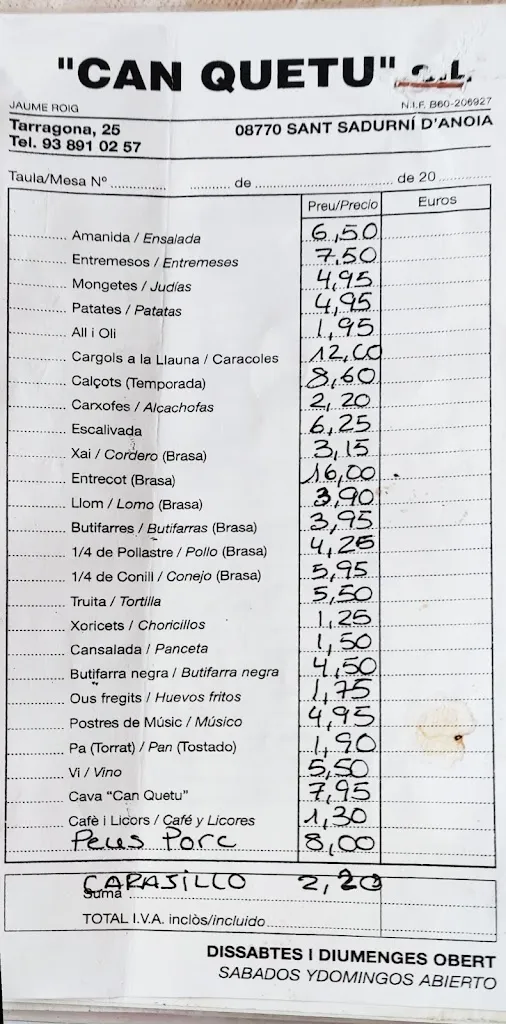 "CAN QUETU" S.L.
JAUME ROIG N.I.F. B60-206927
Tarragona, 25 08770 SANT SADURNÍ D'ANOIA
Tel. 93 891 02 57
Taula/Mesa Nº ............... .......... de .............................. de 20 ..........
Preu/Precio Euros
Amanida / Ensalada 6,50
Entremesos / Entremeses 7,50
Mongetes / Judías 4,95
Patates / Patatas 4,95
All i Oli 1,95
Cargols a la Llauna / Caracoles 12,60
Calçots (Temporada) 8,60
Carxofes / Alcachofas 2,20
Escalivada 6,25
Xai / Cordero (Brasa) 3,15
Entrecot (Brasa) 16,00
Llom / Lomo (Brasa) 3,90
Butifarres / Butifarras (Brasa) 3,95
1/4 de Pollastre / Pollo (Brasa) 4,25
1/4 de Conill / Conejo (Brasa) 5,95
Truita / Tortilla 5,50
Xoricets / Choricillos 1,25
Cansalada / Panceta 1,50
Butifarra negra / Butifarra negra 4,50
Ous fregits / Huevos fritos 1,75
Postres de Músic / Músico 4,95
Pa (Torrat) / Pan (Tostado) 1,90
Vi / Vino 5,50
Cava "Can Quetu" 7,95
Cafè i Licors / Café y Licores 1,30
Peus Porc 8,00
CARAJILLO 2,20
Suma
TOTAL I.V.A. inclòs/incluido
DISSABTES I DIUMENGES OBERT
SABADOS YDOMINGOS ABIERTO